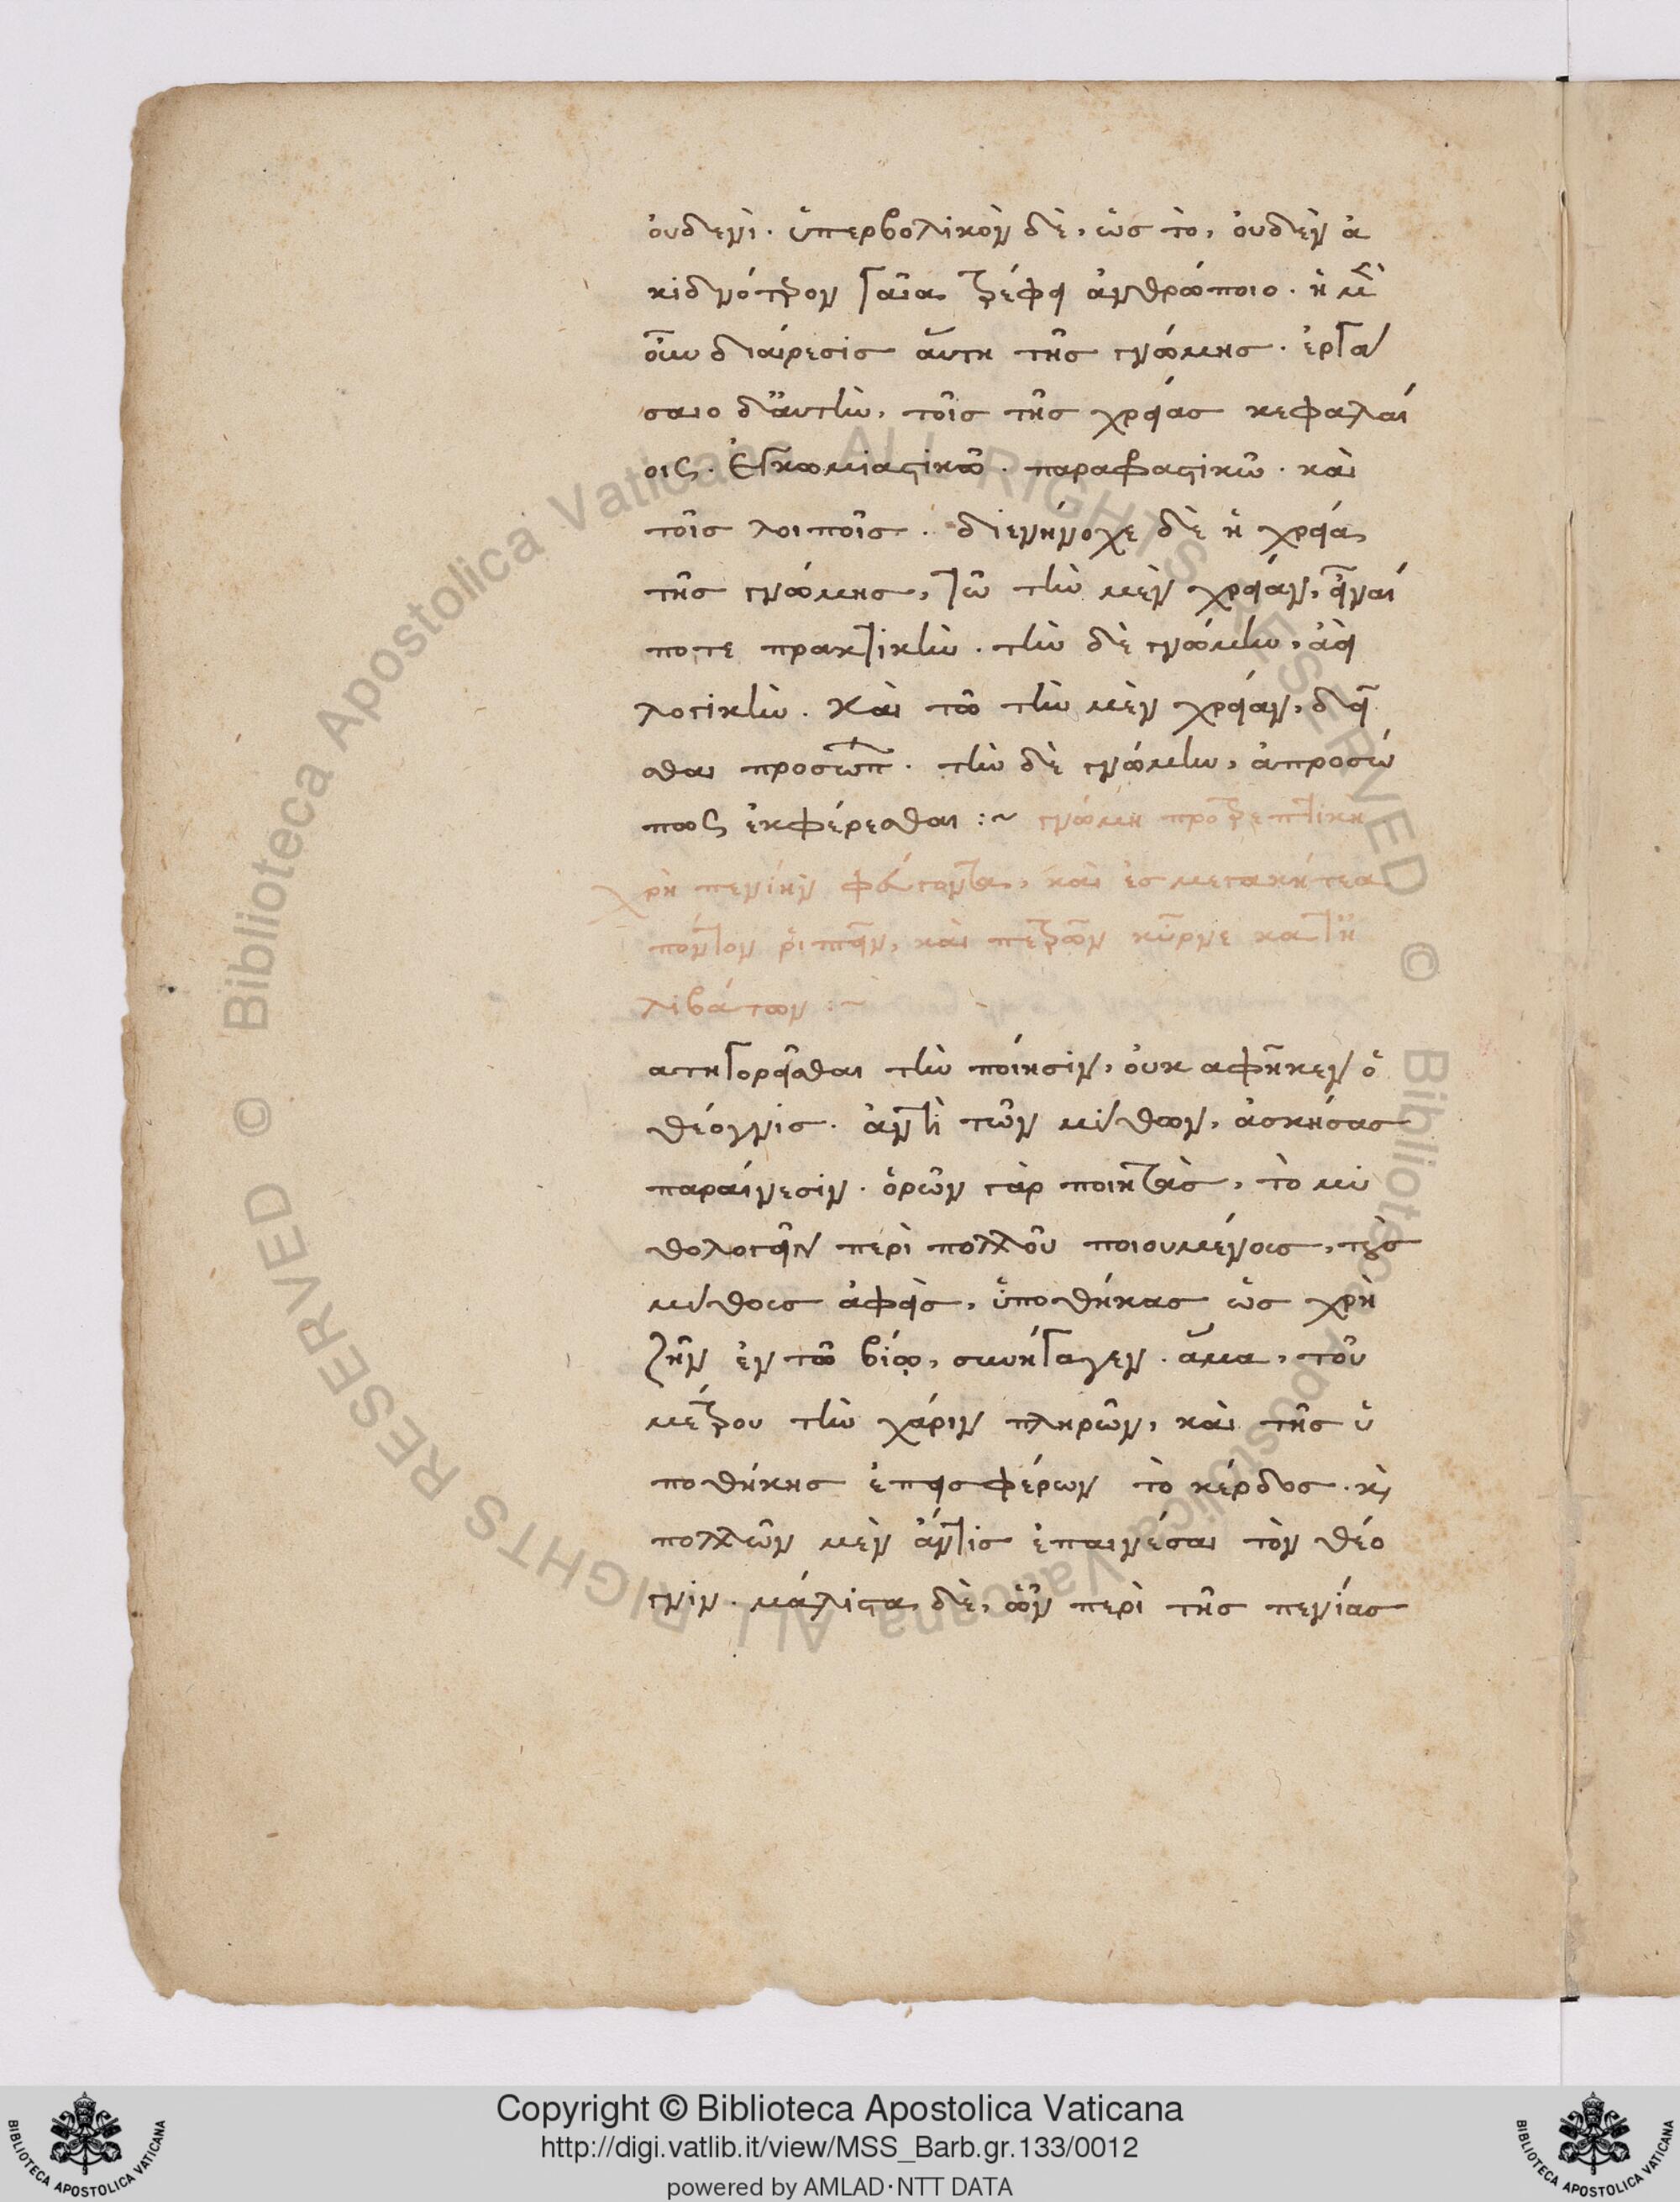 οὐδενὶ. ὑπερβολικὸν δὲ, ὡς τὸ, οὐδὲν ἀ
κιδνότερον γαῖα τρέφει ἀνθρώποιο. ἡ μὲν
οὖν διαίρεσις αὕτη τῆς γνώμης. ἐργά
σαιο δ' ἂυτὴν, τοῖς τῆς χρείας κεφαλαί
οις. Ἐγκωμιαστικῶ. παραφραστικῶ. καὶ
τοῖς λοιποῖς. διενήνοχε δὲ ἡ χρεία
τῆς γνώμης, τῶ τὴν μὲν χρείαν, εἶναί
ποτε πρακτικὴν. τὴν δὲ γνώμην, ἀεὶ
λογικὴν. Καὶ τῶ τὴν μὲν χρείαν, δεῖ
σθαι προσώπ. τὴν δὲ γνώμην, ἀπροσώ
πως ἐκφέρεσθαι :~ γνώμη προτρεπτικὴ
χρὴ πενίην φεύγοντα, καὶ ἐς μεγακήτεα
πόντον ῥιπτεῖν, καὶ πετρῶν κῦρνε κατ' ἢ
λιβάτων :~
ατηγορεῖσθαι τὴν ποίησιν, οὐκ αφῆκεν ὁ
Θέογνις. ἀντὶ τῶν μύθων, ἀσκήσας
παραίνεσιν. ὁρῶν γὰρ ποιητὰς, τὸ μυ
θολογεῖν περὶ πολλοῦ ποιουμένους, τοὺς
μύθους ἀφεὶς, ὑποθήκας ὡς χρὴ
ζῆν ἐν τῶ βίῳ, συνήγαγεν. ἅμα, τοῦ
μέτρου τὴν χάριν πληρῶν, καὶ τῆς ὑ
ποθήκης ἐπεισφέρων τὸ κέρδος. κὶ
πολλῶν μὲν ἄντις ἐπαινέσαι τὸν Θέο
γνιν. μάλιστα δὲ, ὧν περὶ τῆς πενίας
Copyright © Biblioteca Apostolica Vaticana
http://digi.vatlib.it/view/MSS_Barb.gr.133/0012
powered by AMLAD·NTT DATA
BIBLIOTECA APOSTOLICA VATICANA
BIBLIOTECA APOSTOLICA VATICANA
© Biblioteca Apostolica Vaticana ALL RIGHTS RESERVED © Biblioteca Apostolica Vaticana ALL RIGHTS RESERVED